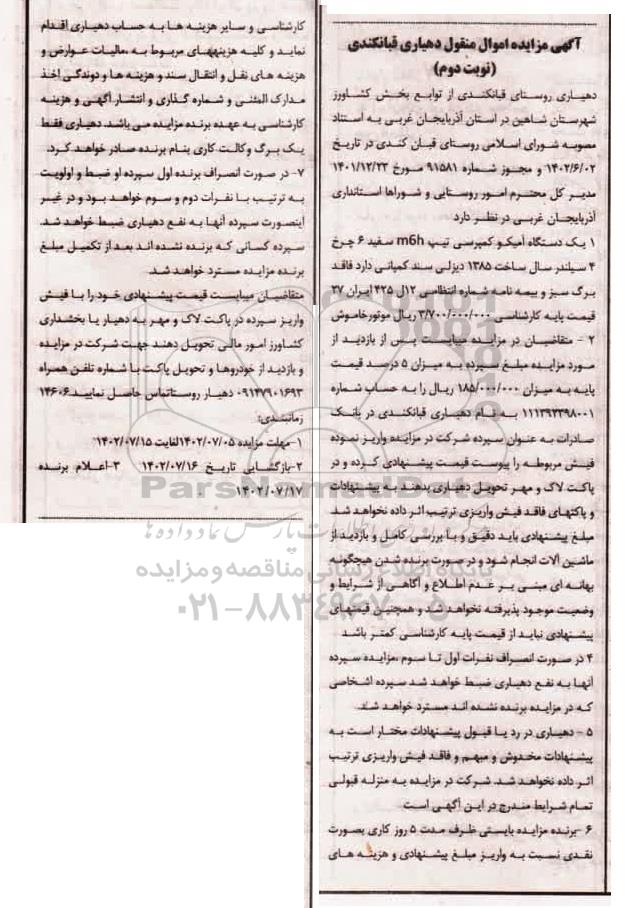 آگهی مزایده اموال منقول دهیاری قبانکندی
(نوبت دوم)
دهیاری روستای قبانکندی از توابع بخش کشاورز
شهرستان شاهین در استان آذربایجان غربی به استناد
مصوبه شورای اسلامی روستای قبان کندی در تاریخ
۱۴۰۲/۶/۰۲ و مجوز شماره ۹۱۵۸۱ مورخ ۱۴۰۱/۱۲/۲۳
مدیر کل محترم امور روستایی و شوراها استانداری
آذربایجان غربی در نظر دارد
۱ یک دستگاه آمیکو کمپرسی تیپ m6h سفید ۶ چرخ
۴ سیلندر سال ساخت ۱۳۸۵ دیزلی سند کمپانی دارد فاقد
برگ سبز و بیمه نامه شماره انتظامی ۱۲ل ۴۲۵ ایران ۳۷
قیمت پایه کارشناسی ۳/۷۰۰/۰۰۰/۰۰۰ ریال موتورخاموش
۲ - متقاضیان در مزایده میبایست پس از بازدید از
مورد مزایده مبلغ سپرده به میزان ۵ درصد قیمت
پایه به میزان ۱۸۵/۰۰۰/۰۰۰ ریال را به حساب شماره
۱۱۱۳۹۳۳۹۸۰۰۱ به نام دهیاری قبانکندی در بانک
صادرات به عنوان سپرده شرکت در مزایده واریز نموده
فیش مربوطه را پیوست قیمت پیشنهادی کرده و در
پاکت لاک و مهر تحویل دهیاری بدهند به پیشنهادات
و پاکتهای فاقد فیش واریزی ترتیب اثر داده نخواهد شد
مبلغ پیشنهادی باید دقیق و با بررسی کامل و بازدید از
ماشین آلات انجام شود و در صورت برنده شدن هیچگونه
بهانه ای مبنی بر عدم اطلاع و آگاهی از شرایط و
وضعیت موجود پذیرفته نخواهد شد و همچنین قیمتهای
پیشنهادی نباید از قیمت پایه کارشناسی کمتر باشد
۴ در صورت انصراف نفرات اول تا سوم ،مزایده سپرده
آنها به نفع دهیاری ضبط خواهد شد سپرده اشخاصی
که در مزایده برنده نشده اند مسترد خواهد شد.
۵ - دهیاری در رد یا قبول پیشنهادات مختار است به
پیشنهادات مخدوش و مبهم و فاقد فیش واریزی ترتیب
اثر داده نخواهد شد. شرکت در مزایده به منزله قبولی
تمام شرایط مندرج در این آگهی است
۶ -برنده مزایده بایستی ظرف مدت ۵ روز کاری بصورت
نقدی نسبت به واریز مبلغ پیشنهادی و هزینه های
کارشناسی و سایر هزینه ها به حساب دهیاری اقدام
نماید و کلیه هزینههای مربوط به مالیات عوارض و
هزینه های نقل و انتقال سند و هزینه ها و دوندگی اخذ
مدارک المثنی و شماره گذاری و انتشار آگهی و هزینه
کارشناسی به عهده برنده مزایده می باشد. دهیاری فقط
یک برگ وکالت کاری بنام برنده صادر خواهد کرد.
۷- در صورت انصراف برنده اول سپرده او ضبط و اولویت
به ترتیب با نفرات دوم و سوم خواهد بود و در غیر
اینصورت سپرده آنها به نفع دهیاری ضبط خواهد شد
سپرده کسانی که برنده نشده اند بعد از تکمیل مبلغ
برنده مزایده مسترد خواهد شد.
متقاضیان میبایست قیمت پیشنهادی خود را با فیش
واریز سپرده در پاکت لاک و مهر به دهیار یا بخشداری
کشاورز امور مالی تحویل دهند جهت شرکت در مزایده
و بازدید از خودروها و تحویل پاکت با شماره تلفن همراه
۰۹۱۴۷۹۰۱۶۹۳ دهیار روستاتماس حاصل نمایید ۱۴۶۰۶
زمانبندی:
۱-مهلت مزایده ۱۴۰۲/۰۷/۰۵لغایت ۱۴۰۲/۰۷/۱۵
۲-بازگشایی تاریخ ۱۴۰۲/۰۷/۱۶ ۳-اعلام برنده
۱۴۰۲/۰۷/۱۷
ParsNamadData
پایگاه اطلاع رسانی مناقصه و مزایده
۰۲۱-۸۸۳۴۹۶۷۰-۵